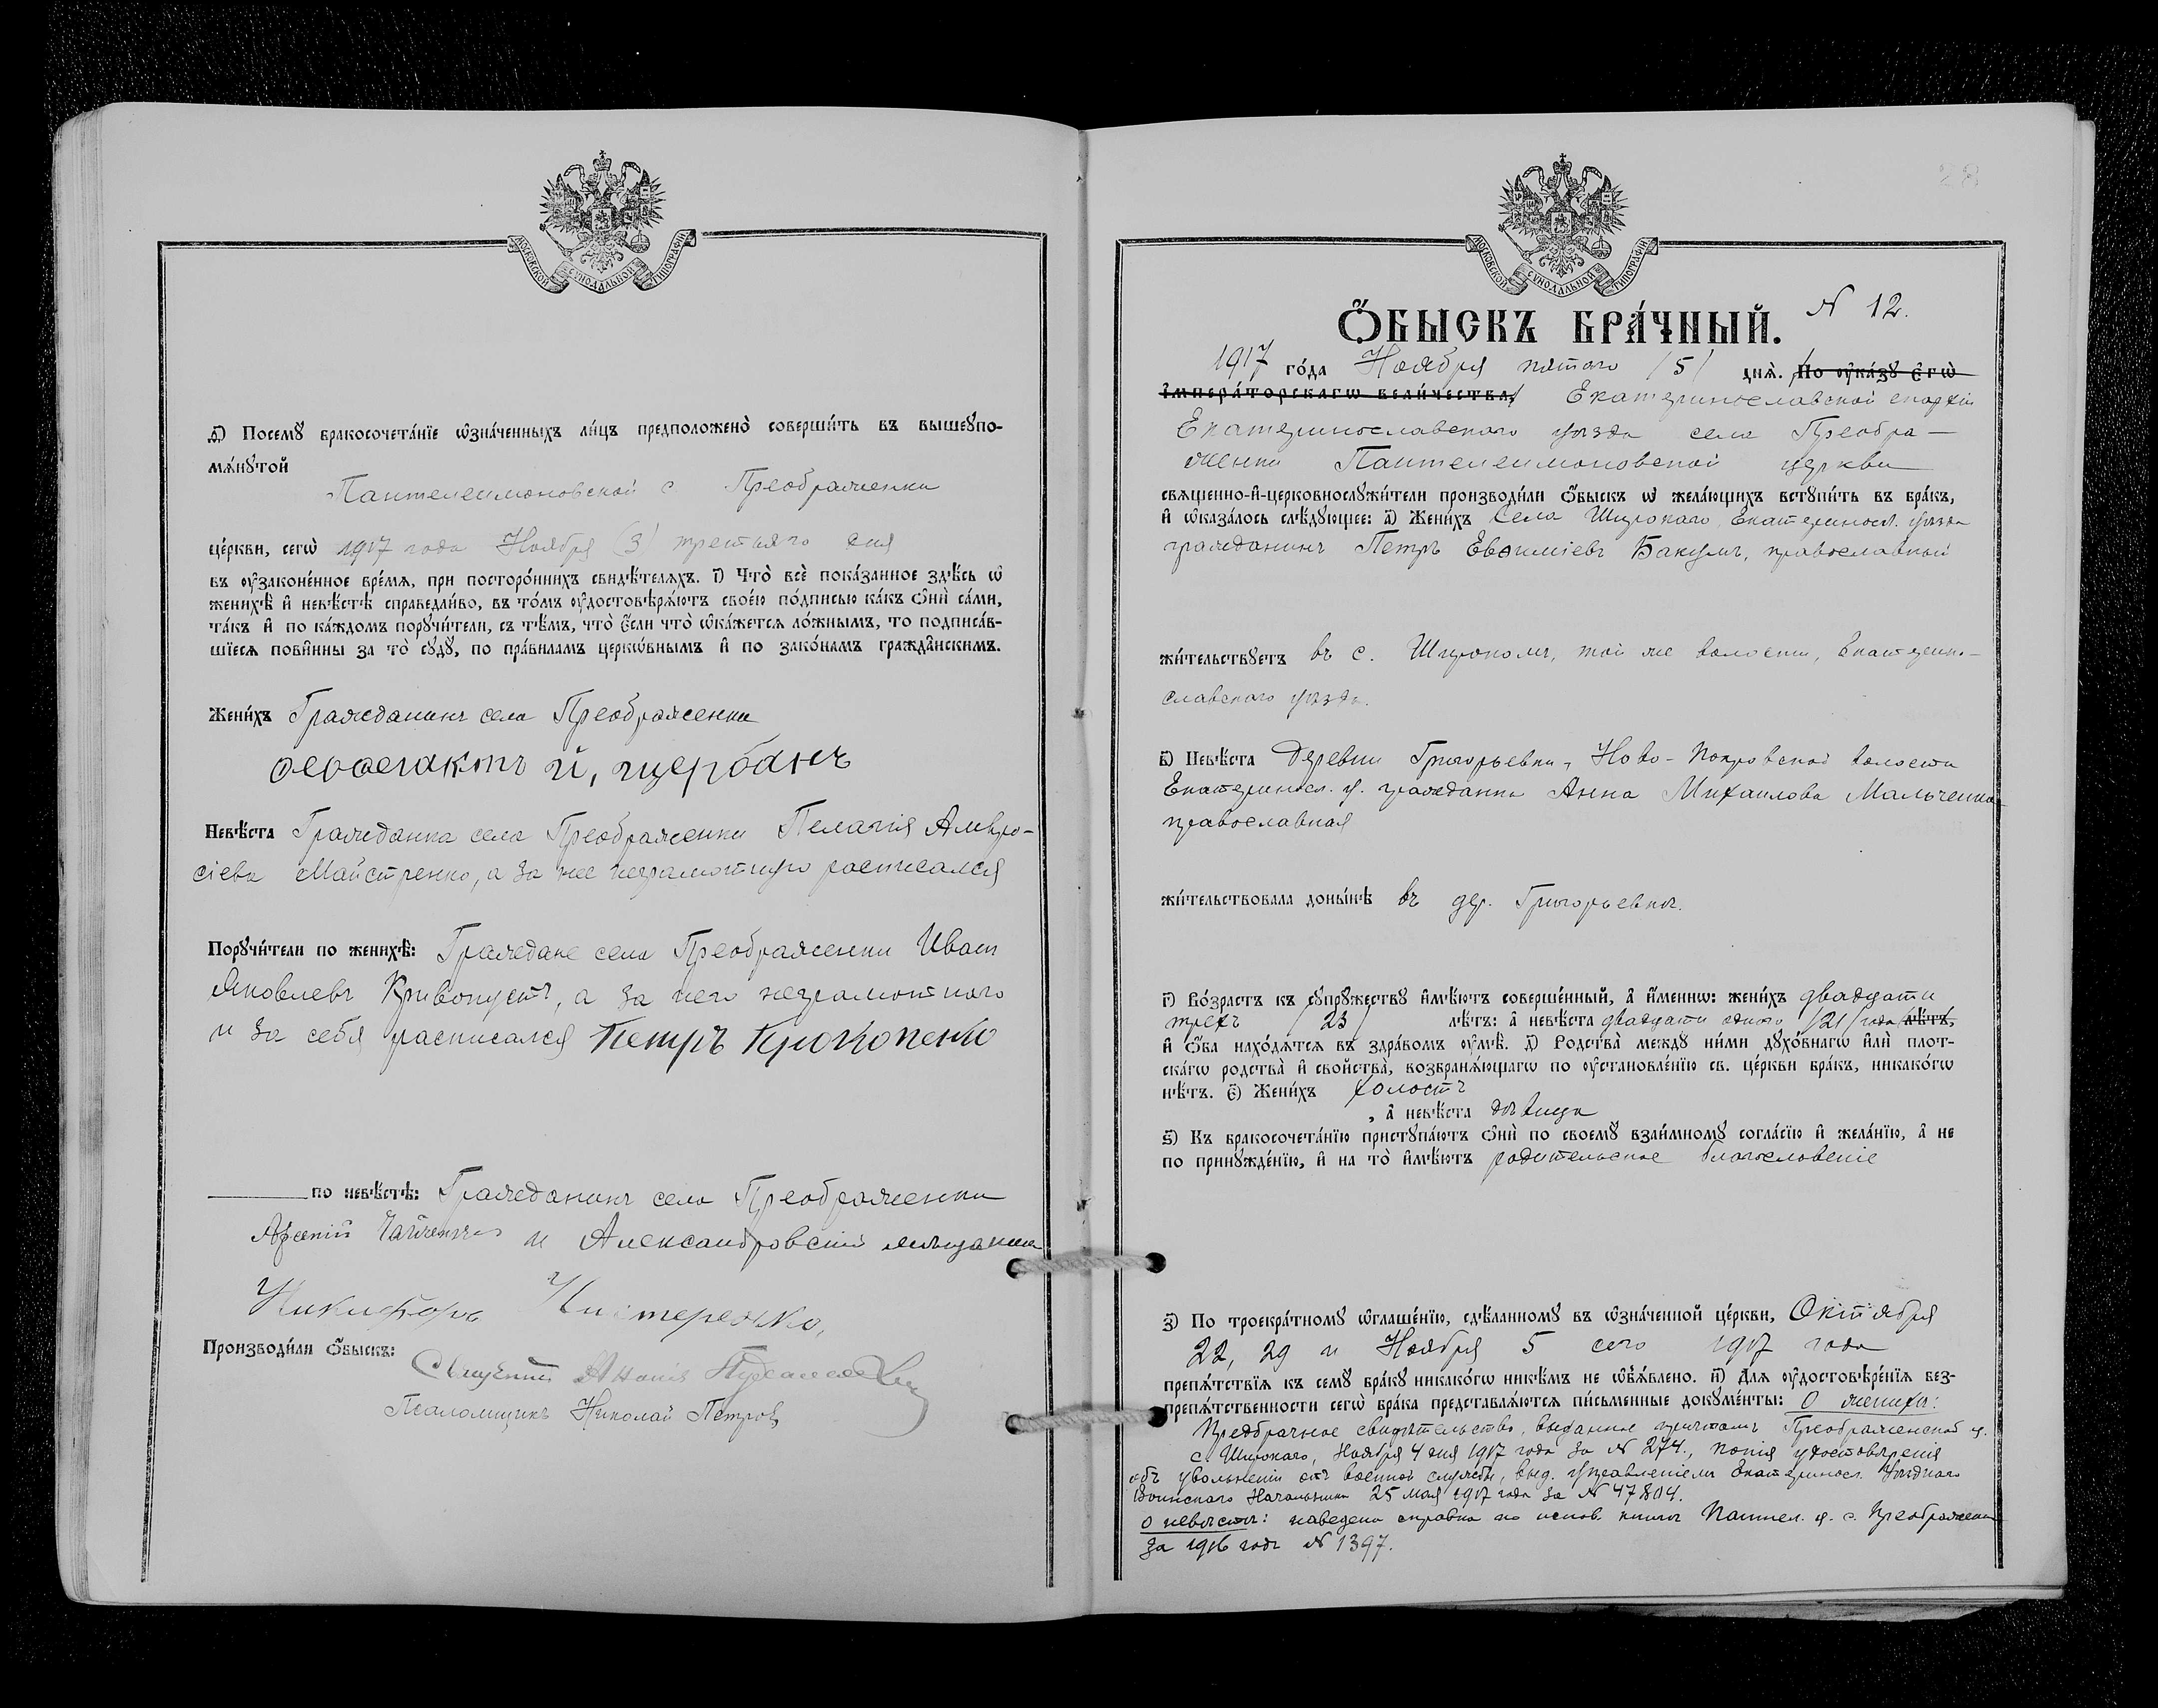 МОСКОВСКОЙ СѴНОДАЛЬНОЙ ТИПОГРАФІИ
д҃) Посемꙋ̀ бракосочета́нїе ѡ҆зна́ченныхъ ли́цъ предположено̀ соверши́ть въ вышеꙋпо-
мѧ́нꙋтой
Пантелеимоновской с Преображенки
це́ркви, сегѡ̀ 1917 года Ноября (3) третьяго дня
въ ᲂу҆законе́нное вре́мѧ, при посторо́ннихъ свидѣ́телѧхъ. ї҃) Что̀ всѐ пока́занное здѣ́сь ѡ҆
женихѣ̀ и҆ невѣ́стѣ справедли́во, въ то́мъ ᲂу҆достовѣрѧ́ютъ свое́ю по́дписью ка́къ ѻ҆нѝ са́ми,
та́къ и҆ по ка́ждомъ порꙋчи́тели, съ тѣ́мъ, что̀ є҆́сли что̀ ѡ҆ка́жетсѧ ло́жнымъ, то подписа́в-
шїесѧ пови́нны за то̀ сꙋдꙋ̀, по пра́виламъ церко́внымъ и҆ по зако́намъ гражда̑нскимъ.
Жени́хъ Гражданинъ села Преображенки
щербанъ
Невѣ́ста Гражданка села Преображенки Пелагія Амвро-
сіева Майстренко, а за нее неграмотную росписался
Порꙋчи́тели по женихѣ̀: Граждане села Преображенки Иван
Яковлевъ Кривопустъ, а за него неграмотного
и за себя расписался Петръ Прокопенко
по невѣ́стѣ: Гражданинъ села Преображенки
Арсеній и Александровскій мѣщанин
Никифоръ Нистеренко,
Производи́ли ѻ҆́быскъ:
Священникъ
Псаломщикъ Николай Петров
МОСКОВСКОЙ СѴНОДАЛЬНОЙ ТИПОГРАФІИ
28
Ѻ҆́БЫСКЪ БРА́ЧНЫЙ. N 12.
1917 го́да Ноября пятого /5/ днѧ̀. По ᲂу҆ка́зꙋ є҆гѡ̀
і҆мпера́торскагѡ вели́чества, Екатеринославской епархіи
Екатеринославского уѣзда села Преобра-
женки Пантелеимоновской церкви
свѧщенно-и҆-церковнослꙋжи́тели производи́ли ѻ҆́быскъ ѡ҆ жела́ющихъ встꙋпи́ть въ бра́къ,
и҆ ѡ҆каза́лось слѣ́дꙋющее: а҃) Жени́хъ Села Широкаго, Екатериносл. уѣзда
гражданинъ Петръ Евфиміевъ Бакумъ, православный
жи́тельствꙋетъ въ с. Широкомъ, той же волости, Екатерино-
славского уѣзда.
в҃) Невѣ́ста Деревни Григорьевки, Ново-Покровской волости
Екатериносл. у. гражданка Анна Михаилова Мальченко
православная
жи́тельствовала доны́нѣ въ дер. Григорьевкѣ.
г҃) Во́зрастъ къ сꙋпрꙋ́жествꙋ и҆мѣ́ютъ соверше́нный, а҆ и҆́меннѡ: жени́хъ двадцати
трехъ /23/ лѣ́тъ: а҆ невѣ́ста двадцати одного /21/ года лѣ́тъ,
и҆ ѻ҆́ба нахо́дѧтсѧ въ здра́вомъ ᲂу҆мѣ̀. д҃) Родства̀ междꙋ ни́ми дꙋхо́внагѡ и҆лѝ плот-
ска́гѡ родства̀ и҆ свойства̀, возбранѧ́ющагѡ по ᲂу҆становле́нїю св. це́ркви бра́къ, никако́гѡ
нѣ́тъ. є҃) Жени́хъ холостъ
, а҆ невѣ́ста дѣвица
ѕ҃) Къ бракосочета́нїю пристꙋпа́ютъ ѻ҆нѝ по своемꙋ̀ взаи́мномꙋ согла́сїю и҆ жела́нїю, а҆ не
по принꙋжде́нїю, и҆ на то̀ и҆мѣ́ютъ родительское благословеніе
з҃) По троекра́тномꙋ ѡ҆глаше́нїю, сдѣ́ланномꙋ въ ѡ҆зна́ченной це́ркви, Октября
22, 29 и Ноября 5 сего 1917 года
препѧ́тствїѧ къ семꙋ̀ бра́кꙋ никако́гѡ никѣ́мъ не ѡ҆б̾ѧ́влено. и҃) Длѧ ᲂу҆достовѣ́ренїѧ без-
препѧ́тственности сегѡ̀ бра́ка представлѧ́ютсѧ пи́сьменные докꙋме́нты: О женихѣ:
Предбрачное свидѣтельство, выданное причтомъ Преображенской ц.
с. Широкаго, Ноября 4 дня 1917 года за N 274., копія удостовѣренія
объ увольненіи отъ военной службы, выд. Управленіемъ Екатериносл. Уѣздного
Воинского Начальника 25 мая 1917 года за N 47804.
О невѣстѣ: наведена справка по испов. книгѣ Пантел. ц. с. Преображенки
за 1916 годъ N 1397.